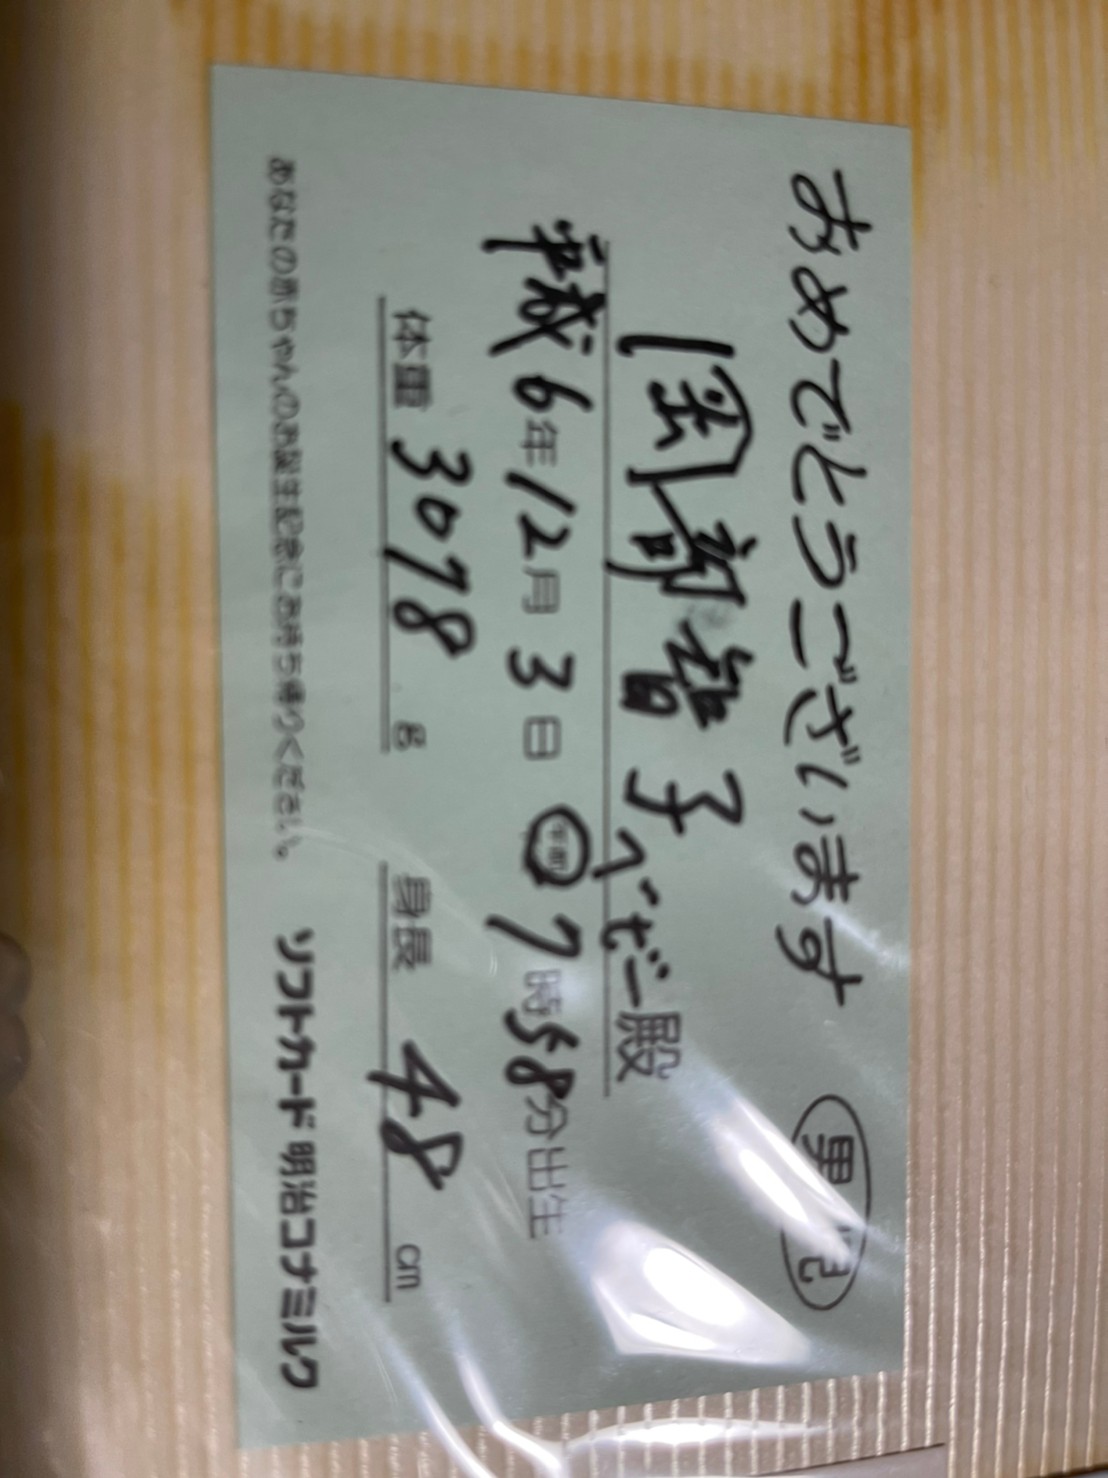 おめでとうございます
男児
岡部智子ベビー殿
平成6年12月3日 午前7時58分出生
体重 3078 g 身長 48 cm
あなたの赤ちゃんのお誕生記念にお持ち帰りください。 ソフトカード 明治コナミルク